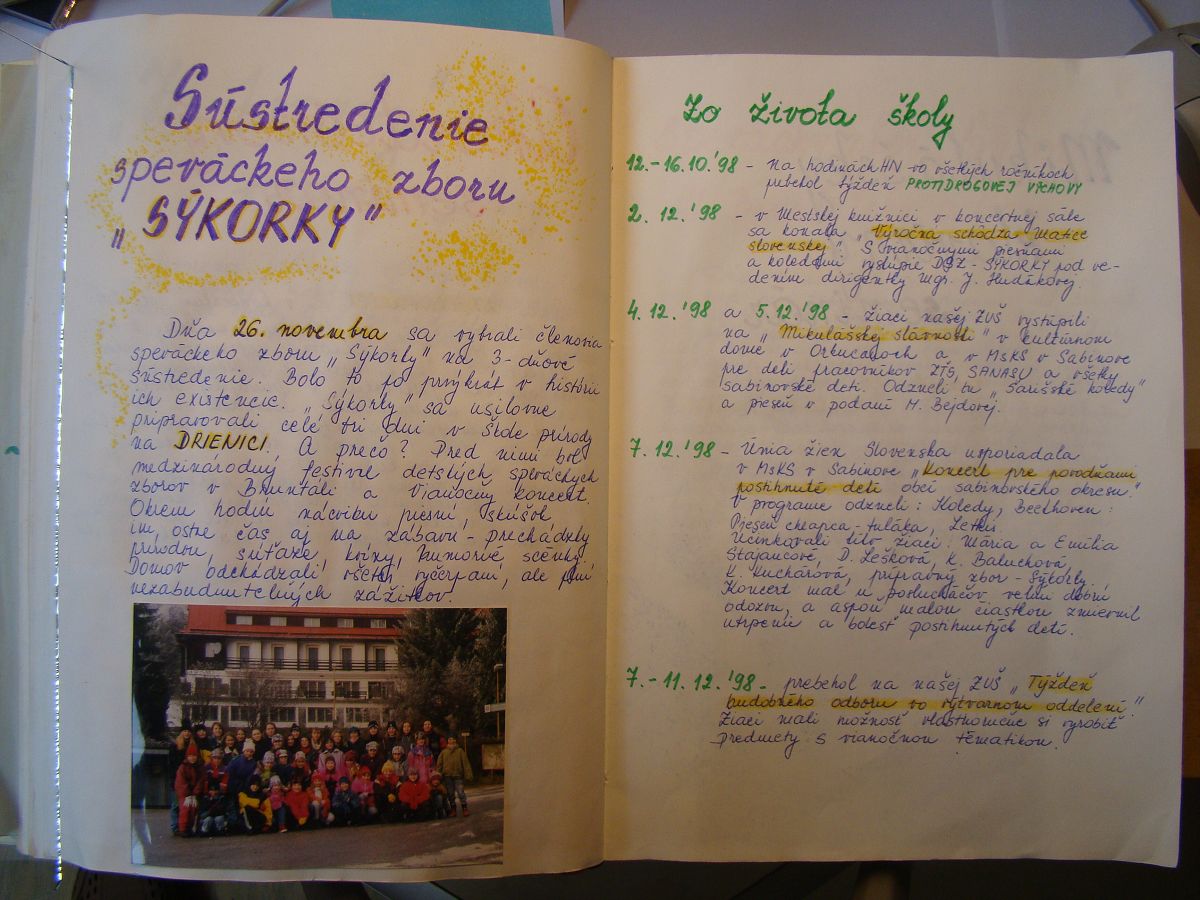 Sústredenie
speváckeho zboru
„SÝKORKY"
Dňa 26. novembra sa vybrali členovia
speváckeho zboru „Sýkorky" na 3-dňové
sústredenie. Bolo to po prvýkrát v histórii
ich existencie. „Sýkorky" sa usilovne
pripravovali celé tri dni v Škole prírody
na DRIENICI. A prečo? Pred nimi bol
medzinárodný festival detských speváckych
zborov v Bruntáli a Vianočný koncert.
Okrem hodín nácviku piesní, skúšok
im, ostal čas aj na zábavu - prechádzky
prírodou, súťaže, kvízy, humorné scénky.
Domov odchádzali všetci vyčerpaní, ale plní
nezabudnuteľných zážitkov.
Zo života školy
12.-16.10.'98 - na hodinách HN vo všetkých ročníkoch
prebehol týždeň PROTIDROGOVEJ VÝCHOVY
2. 12. '98 - v Mestskej knižnici v koncertnej sále
sa konala „Výročná schôdza Matice
slovenskej". S vianočnými piesňami
a koledami vystúpil DSZ - SÝKORKY pod ve-
dením dirigentky Mgr. J. Hudákovej.
4. 12. '98 a 5.12. '98 - žiaci našej ZUŠ vystúpili
na „Mikulášskej slávnosti" v kultúrnom
dome v Orkucanoch a v MsKS v Sabinove
pre deti pracovníkov ZŤS, SANASU a všetky
sabinovské deti. Odzneli tu „Šarišské koledy"
a pieseň v podaní M. Bejdovej.
7. 12. '98 - Únia žien Slovenska usporiadala
v MsKS v Sabinove „Koncert pre povodňami
postihnuté deti obcí sabinovského okresu."
V programe odzneli: Koledy, Beethoven:
Pieseň chlapca - tuláka, Letkis
Účinkovali títo žiaci: Mária a Emília
Stajančové, D. Lešková, K. Baluchová,
K. Kuchárová, prípravný zbor - Sýkorky.
Koncert mal u poslucháčov veľmi dobrú
odozvu, a aspoň malou čiastkou zmiernil
utrpenie a bolesť postihnutých detí.
7.- 11. 12. '98 - prebehol na našej ZUŠ „Týždeň
hudobného odboru vo výtvarnom oddelení."
Žiaci mali možnosť vlastnoručne si vyrobiť
predmety s vianočnou tématikou.